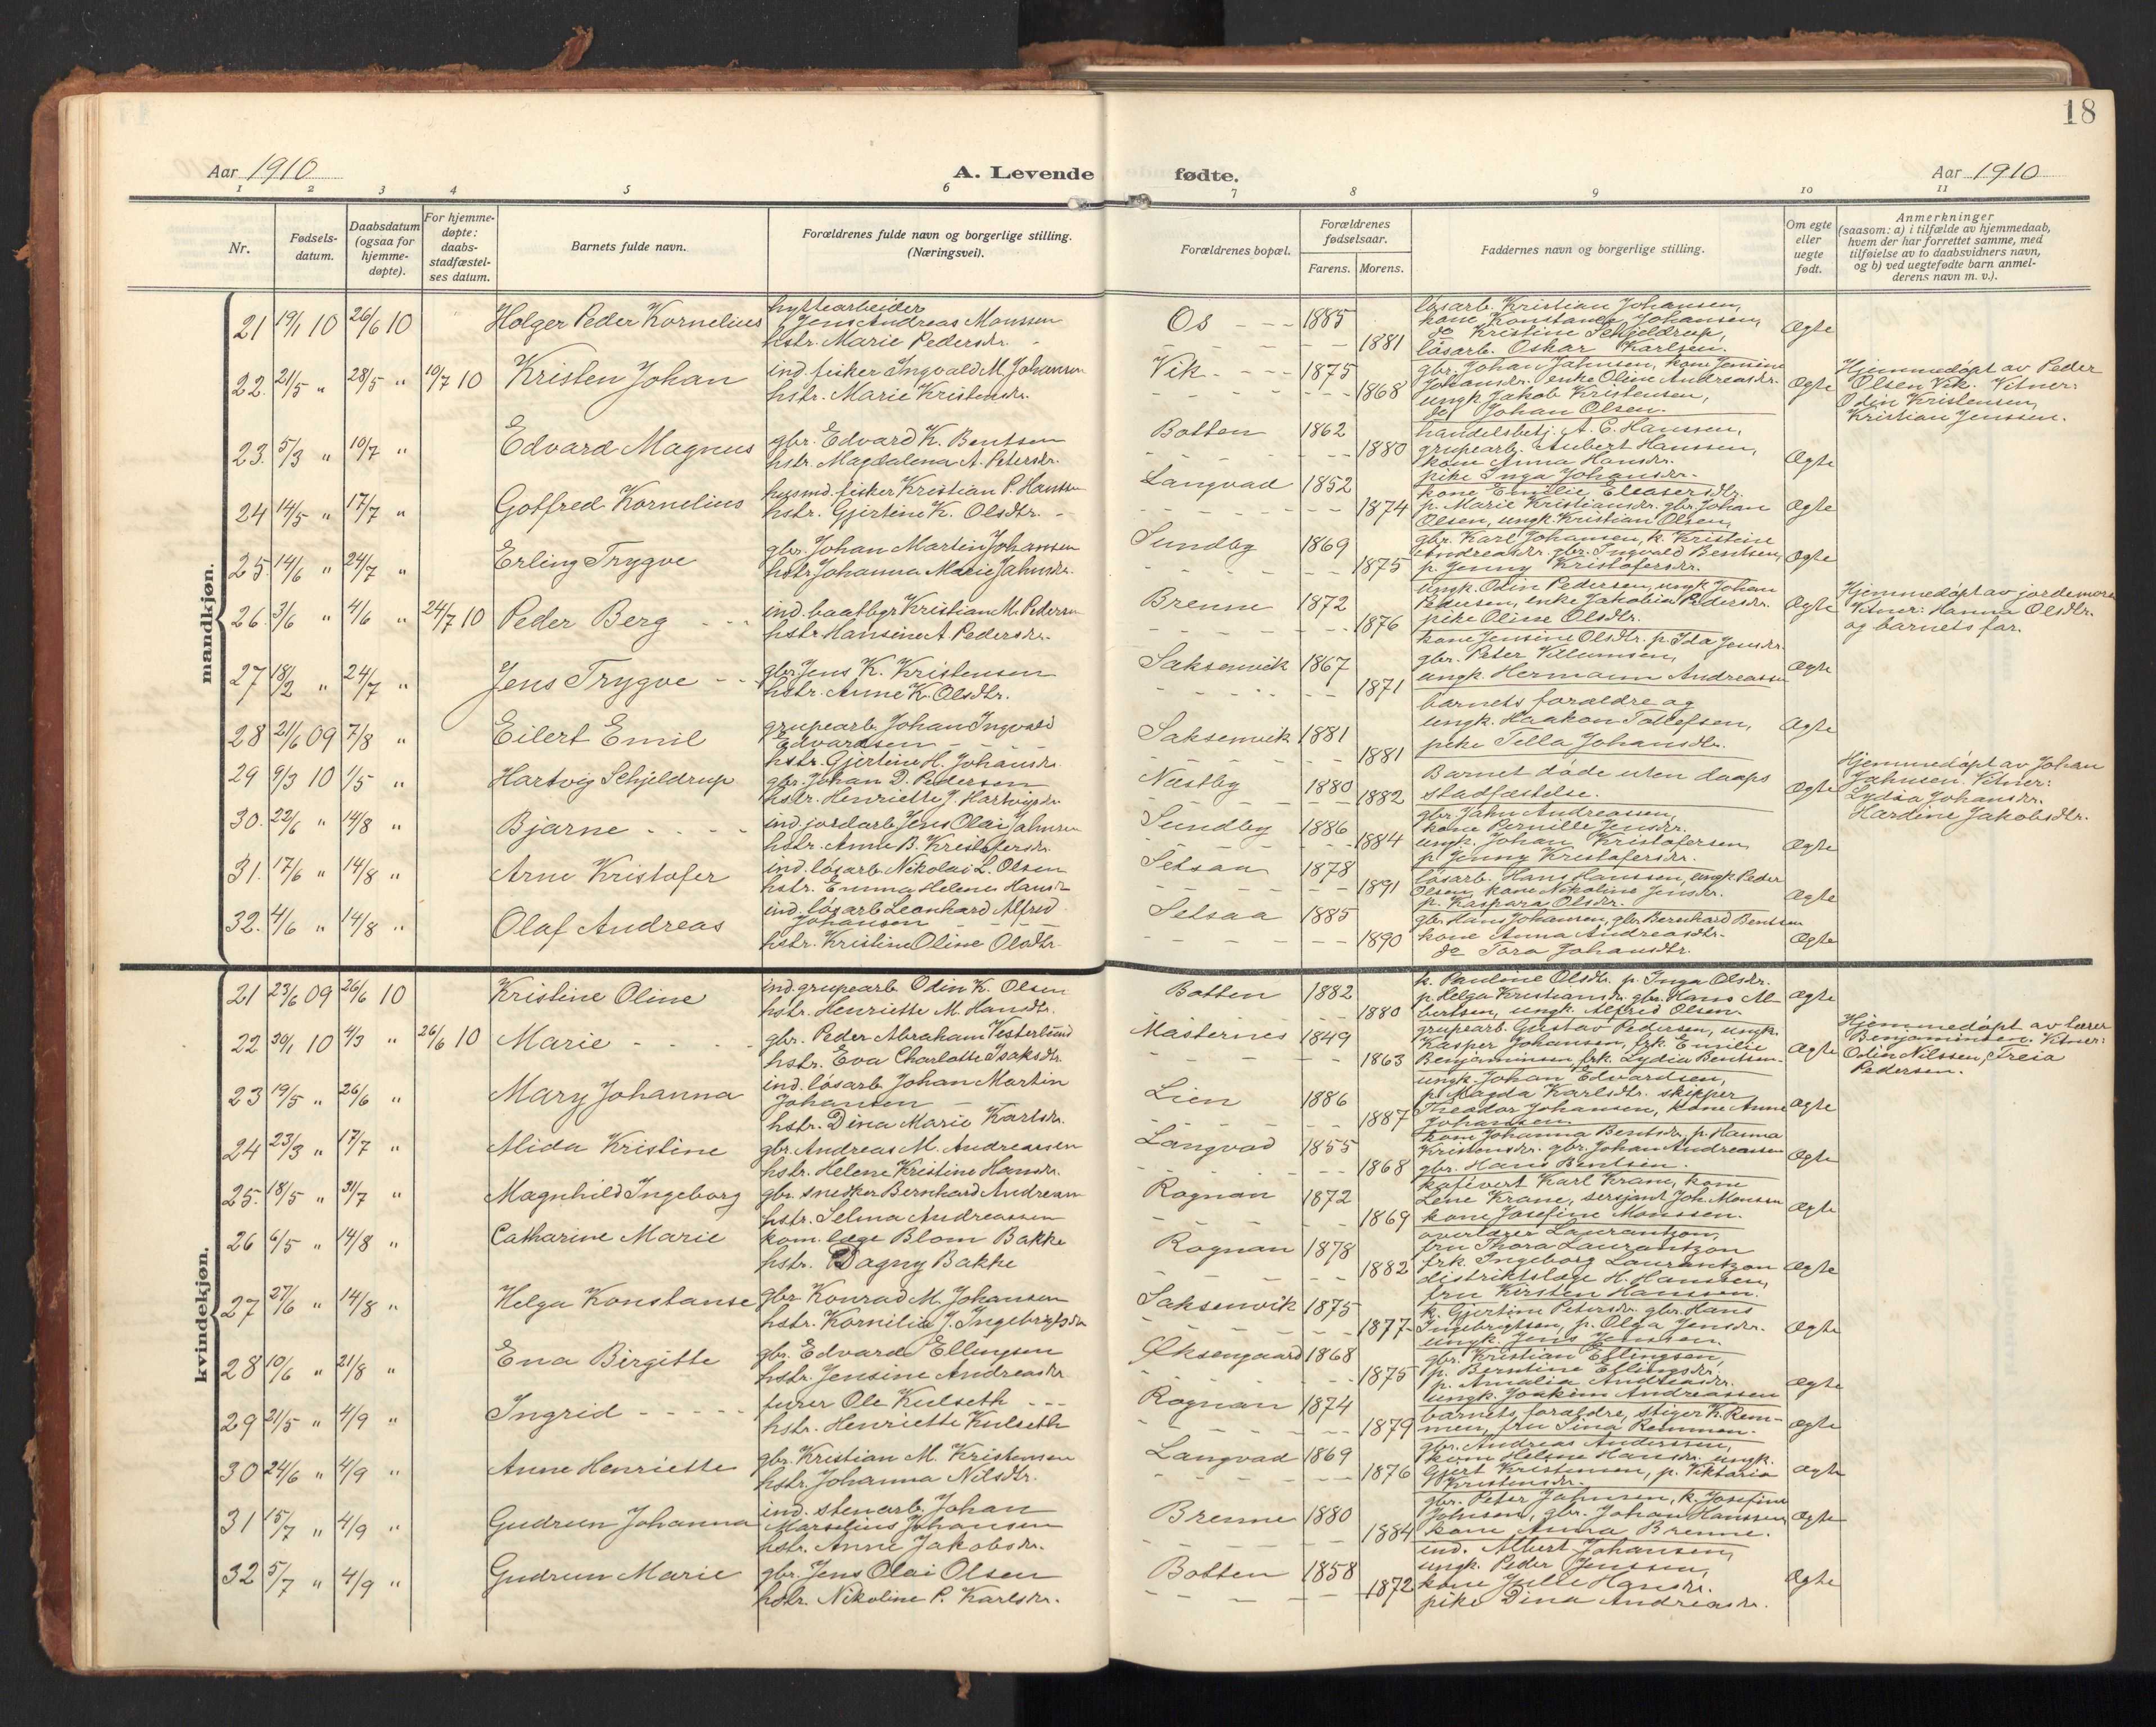 18
Aar 1910
A. Levende fødte.
Aar 1910
1 2 3 4 5 6 7 8 9 10 11
Nr.
Fødsels-
datum.
Daabsdatum
(ogsaa for
hjemme-
døpte).
For hjemme-
døpte:
daabs-
stadfæstel-
ses datum.
Barnets fulde navn.
Forældrenes fulde navn og borgerlige stilling.
(Næringsvei).
Forældrenes bopæl.
Forældrenes
fødselsaar.
Farens. Morens.
Faddernes navn og borgerlige stilling.
Om egte
eller
uegte
født.
Anmerkninger
(saasom: a) i tilfælde av hjemmedaab,
hvem der har forrettet samme, med
tilføielse av to daabsvidners navn,
og b) ved uegtefødte barn anmel-
derens navn m. v.).
mandkjøn.
21 19/1 10 26/6 10 Holger Peder Kornelius
hyttearbeider
Jens Andreas Monssen
hstr. Marie Pedersdr.
Os 1885 1881
løsarb. Kristian Johansen,
kone Konstanse Johansen,
do Kristine Schjeldrup,
løsarb. Oskar Karlsen.
Ægte
22. 21/5 " 28/5 " 10/7 10 Kristen Johan
ind. fisker Ingvald M. Johansen
hstr. Marie Kristensdr.
Vik 1875 1868
gbr. Johan Jahnsen, kone Jensine
Johansdr. enke Oline Andreasdr.
ungk. Jakob Kristensen,
do Johan Olsen.
Ægte
Hjemmedøpt av Peder
Olsen Vik. Vitner:
Odin Kristensen,
Kristian Jenssen.
23. 5/3 " 10/7 " Edvard Magnus
gbr. Edvard K. Bentsen
hstr. Magdalena A. Petersdr.
Botten 1862 1880
handelsbetj. A. E. Hanssen,
grupearb. Anbert Hanssen,
kone Anna Hansdr.
pike Inga Johansdr.
Ægte
24 14/5 " 17/7 " Gotfred Kornelius
husmd. fisker Kristian P. Hanssen
hstr. Gjertine K. Olsdtr.
Langvad 1852 1874
kone Emilie Eleasersdtr.
p. Marie Kristiansdr. gbr. Johan
Olsen, ungk. Kristian Olsen.
Ægte
25. 14/6 " 24/7 " Erling Trygve
gbr. Johan Martin Johansen
hstr. Johanna Marie Jahnsdr.
Sundby 1869 1875
gbr. Karl Johansen, k. Kristine
Andreasdr. gbr. Ingvald Bentsen,
p. Jenny Kristofersdr.
Ægte
26. 3/6 " 4/6 " 24/7 10 Peder Berg
ind. baatbgr. Kristian M. Pedersen
hstr. Hansine A. Pedersdr.
Brenne 1872 1876
ungk. Odin Pedersen, ungk. Johan
Pedersen, enke Jakobia Pedersdr.
pike Oline Olsdtr.
Ægte
Hjemmedøpt av jordemoren
Vitner: Hanna Olsdtr.
og barnets far.
27 18/2 " 24/7 " Jens Trygve
gbr. Jens K. Kristensen
hstr. Anne K. Olsdtr.
Saksenvik 1867 1871
kone Jensine Olsdtr. p. Ida Jensdr.
gbr. Peter Villumsen,
ungk. Hermann Andreassen
Ægte
28 21/6 09 7/8 " Eilert Emil
grupearb. Johan Ingvald
Edvardsen
hstr. Gjertine H. Johansdr.
Saksenvik 1881 1881
barnets forældre og
ungk. Haakon Tollefsen,
pike Tella Johansdtr.
Ægte
29 9/3 10 1/5 " Hartvig Schjeldrup
gbr. Johan D. Pedersen
hstr. Henriette J. Hartvigsdr.
Næstby 1880 1882
Barnet døde uten daaps
stadfæstelse.
Ægte
Hjemmedøpt av Johan
Jahnsen. Vitner:
Lydia Johansdr.
Hardine Jakobsdtr.
30. 22/6 " 14/8 " Bjarne
ind. jordarb. Jens Olai Jahnsen
hstr. Anna B. Kristofersdr.
Sundby 1886 1884
gbr. Jahn Andreassen,
kone Pernille Jensdr.
ungk. Johan Kristofersen,
p. Jenny Kristofersdr.
Ægte
31. 17/6 " 14/8 " Arne Kristofer
ind. løsarb. Nikolai L. Olsen
hstr. Emma Helene Hansdr.
Setsaa 1878 1891
løsarb. Hans Hanssen, ungk. Peder
Olsen, kone Nikoline Jensdr.
p. Kaspara Olsdr.
Ægte
32. 4/6 " 14/8 " Olaf Andreas
ind. løsarb. Leonhard Alfred
Johansen
hstr. Kristine Oline Olsdtr.
Setsaa 1885 1890
gbr. Hans Johansen, gbr. Bernhard Bentsen
kone Anna Andreasdtr.
do Tora Johansdtr.
Ægte
kvindekjøn.
21 23/6 09 26/6 10 Kristine Oline
ind. grupearb. Odin K. Olsen
hstr. Henriette M. Hansdtr.
Botten 1882 1880
k. Pauline Olsdtr. p. Inga Olsdr.
p. Helga Kristiansdr. gbr. Hans Al-
bertsen, ungk. Alfred Olsen.
Ægte
22 30/1 10 4/3 " 26/6 10 Marie
gbr. Peder Abraham Vesterlund
hstr. Eva Charlotte Isaksdtr.
Masternes 1849 1863
grupearb. Gustav Pedersen, ungk.
Kasper Johansen, frk. Emilie
Benjaminsen, frk. Lydia Bentsen.
Ægte
Hjemmedøpt av lærer
Benjaminsen. Vitner:
Odin Nilssen, Freia
Pedersen.
23 19/5 " 26/6 " Mary Johanna
ind. løsarb. Johan Martin
Johansen
hstr. Dina Marie Karlsdr.
Lien 1886 1887
ungk. Johan Edvardsen,
p. Magda Karlsdtr. skipper
Theodor Johansen, kone Anne
Johansen.
Ægte
24 23/3 " 17/7 " Alida Kristine
gbr. Andreas M. Andreassen
hstr. Helene Kristine Hansdr.
Langvad 1855 1868
kone Johanna Bentsdr. p. Hanna
Kristensdr. gbr. Johan Andreassen
gbr. Hans Bentsen.
Ægte
25. 18/5 " 31/7 " Magnhild Ingeborg
gbr. snedker Bernhard Andreassen
hstr. Selma Andreassen
Rognan 1872 1869
kafévert Karl Krane, kone
Lene Krane, sersjant Joh. Monssen
kone Josefine Monssen.
Ægte
26 6/5 " 14/8 " Catharine Marie
kom. læge Blom Bakke
hstr. Dagny Bakke
Rognan 1878 1882
overlærer Laurantzon,
fru Thora Laurantzon
frk. Ingeborg Laurantzon
distriktslæge H. Hanssen,
fru Kirsten Hanssen.
Ægte
27 27/6 " 14/8 " Helga Konstanse
gbr. Konrad M. Johansen
hstr. Kornelia J. Ingebrigtsdr.
Saksenvik 1875 1877
k. Gjertine Petersdr. gbr. Hans
Ingebrigtsen, p. Olga Jensdr.
ungk. Jens Jenssen.
Ægte
28 10/6 " 21/8 " Ena Birgitte
gbr. Edvard Ellingsen
hstr. Jensine Andreasdr.
Øksengaard 1868 1875
gbr. Kristian Ellingsen,
p. Berntine Ellingsdr.
p. Amalia Andreasdr.
ungk. Joakim Andreassen
Ægte
29 21/5 " 4/9 " Ingrid
furer Ole Kulseth
hstr. Henriette Kulseth
Rognan 1874 1879
barnets forældre, stiger K. Rem-
men, fru Sina Remmen.
Ægte
30 24/6 " 4/9 " Anne Henriette
gbr. Kristian M. Kristensen
hstr. Johanna Nilsdtr.
Langvad 1869 1876
gbr. Andreas Anderssen,
kone Helene Hansdr. ungk.
Gjert Kristensen, p. Viktoria
Kristensdr.
Ægte
31 15/7 " 4/9 " Gudrun Johanna
ind. stenarb. Johan
Marselius Johansen
hstr. Anne Jakobsdr.
Brenne 1880 1884
gbr. Peter Jahnsen, k. Josefine
Johnsen, gbr. Johan Hanssen,
kone Anna Brenne.
Ægte
32 5/7 " 4/9 " Gudrun Marie
gbr. Jens Olai Olsen
hstr. Nikoline P. Karlsdr.
Botten 1858 1872
ind. Albert Johansen,
ungk. Peder Jenssen,
kone Julie Hansdr.
pike Dina Andreasdr.
Ægte